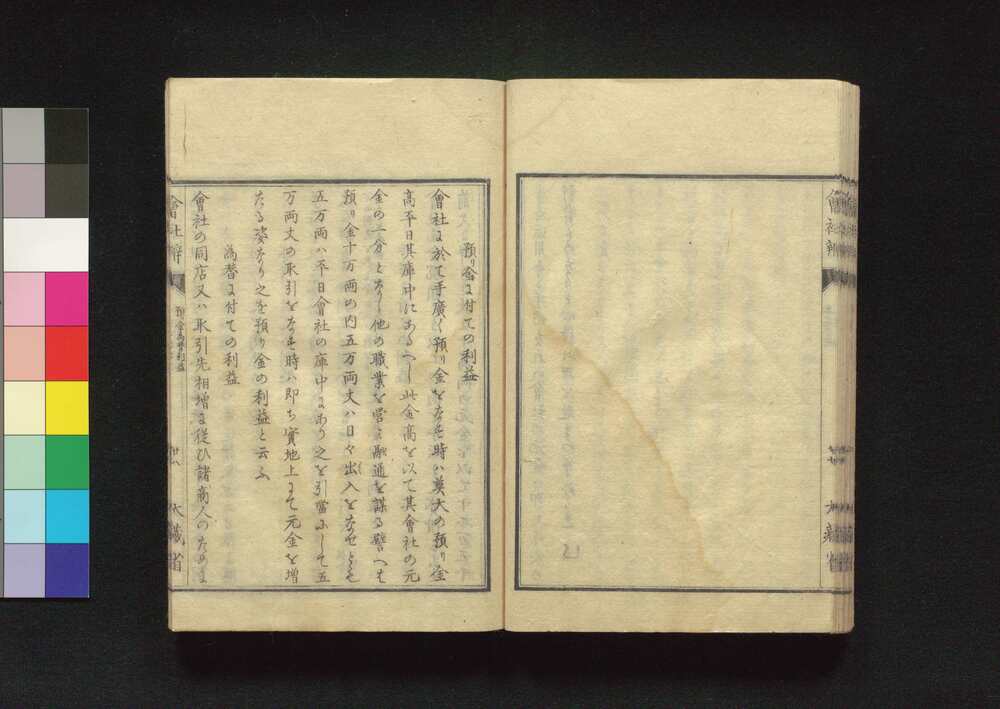 會社辨
大藏省
預り金に付ての利益
會社に於て手廣く預り金をなす時ハ莫大の預り金
高平日其庫中にあるへし此金高を以て其會社の元
金の一分となし他の職業を營み融通を謀る譬へは
預り金十万両の内五万両丈ハ日々出入をなせとも
五万両ハ平日會社の庫中にあり之を引當にして五
万両丈の取引をなす時ハ即ち實地上にて元金を増
たる姿なり之を預り金の利益と云ふ
為替に付ての利益
會社の同店又ハ取引先相増に從ひ諸商人のために
會社辨
預金為替利益
廿八
大藏省